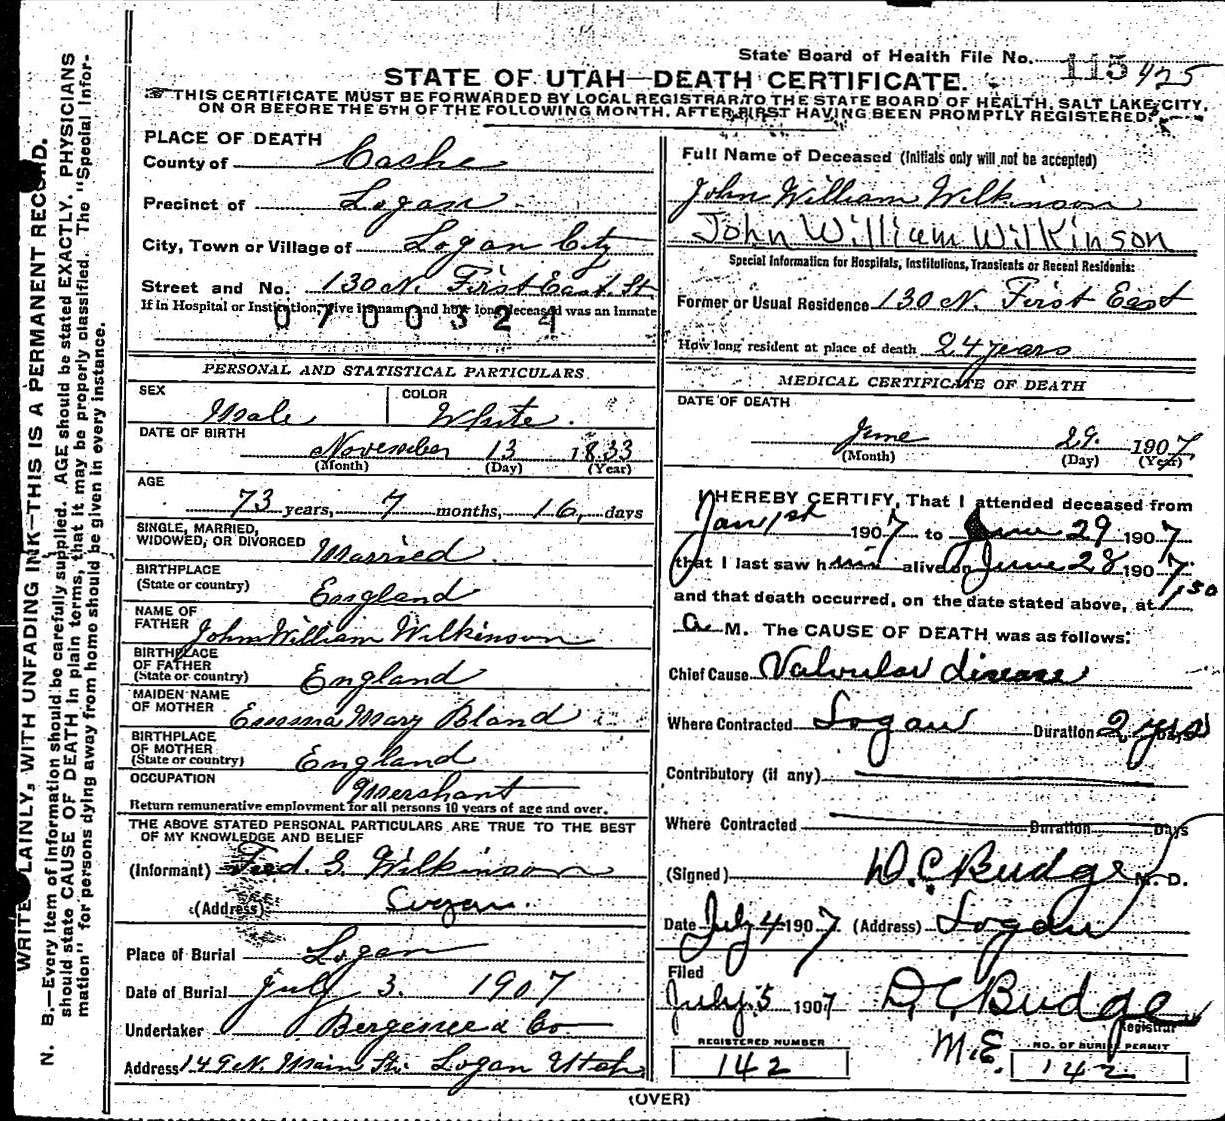 State Board of Health File No. 115 425
STATE OF UTAH—DEATH CERTIFICATE.
THIS CERTIFICATE MUST BE FORWARDED BY LOCAL REGISTRAR TO THE STATE BOARD OF HEALTH, SALT LAKE CITY,
ON OR BEFORE THE 5TH OF THE FOLLOWING MONTH, AFTER FIRST HAVING BEEN PROMPTLY REGISTERED.
WRITE PLAINLY, WITH UNFADING INK—THIS IS A PERMANENT RECORD.
N. B.—Every item of information should be carefully supplied. AGE should be stated EXACTLY. PHYSICIANS
should state CAUSE OF DEATH in plain terms, that it may be properly classified. The "Special Infor-
mation" for persons dying away from home should be given in every instance.
PLACE OF DEATH
County of Cache
Precinct of Logan
City, Town or Village of Logan City
Street and No. 130 N. First East St
If in Hospital or Institution, give its name and how long deceased was an inmate
0700324
PERSONAL AND STATISTICAL PARTICULARS.
SEX Male COLOR White.
DATE OF BIRTH November 13 1833
(Month) (Day) (Year)
AGE
73 years, 7 months, 16, days
SINGLE, MARRIED,
WIDOWED, OR DIVORCED Married
BIRTHPLACE
(State or country) England
NAME OF
FATHER John William Wilkinson
BIRTHPLACE
OF FATHER
(State or country) England
MAIDEN NAME
OF MOTHER Emma Mary Bland
BIRTHPLACE
OF MOTHER
(State or country) England
OCCUPATION Merchant
Return remunerative employment for all persons 10 years of age and over.
THE ABOVE STATED PERSONAL PARTICULARS ARE TRUE TO THE BEST
OF MY KNOWLEDGE AND BELIEF
(Informant) Fred. G. Wilkinson
(Address) Logan.
Place of Burial Logan
Date of Burial July 3. 1907
Undertaker & Co
Address 149 N. Main St. Logan Utah
Full Name of Deceased (Initials only will not be accepted)
John William Wilkinson
John William Wilkinson
Special Information for Hospitals, Institutions, Transients or Recent Residents:
Former or Usual Residence 130 N. First East
How long resident at place of death 24 years
MEDICAL CERTIFICATE OF DEATH
DATE OF DEATH
June 29. 1907
(Month) (Day) (Year)
I HEREBY CERTIFY, That I attended deceased from
Jan 1st 1907 to June 29 1907
that I last saw him alive on June 28 1907
and that death occurred, on the date stated above, at 1,50
a M. The CAUSE OF DEATH was as follows:
Chief Cause Valvular disease
Where Contracted Logan Duration 2 yrs Days
Contributory (if any)
Where Contracted Duration Days
(Signed) D. C. Budge M. D.
Date July 4 1907 (Address) Logan
Filed
July 5 1907 D. C. Budge
Registrar
M.E.
REGISTERED NUMBER
142
NO. OF BURIAL PERMIT
142
(OVER)